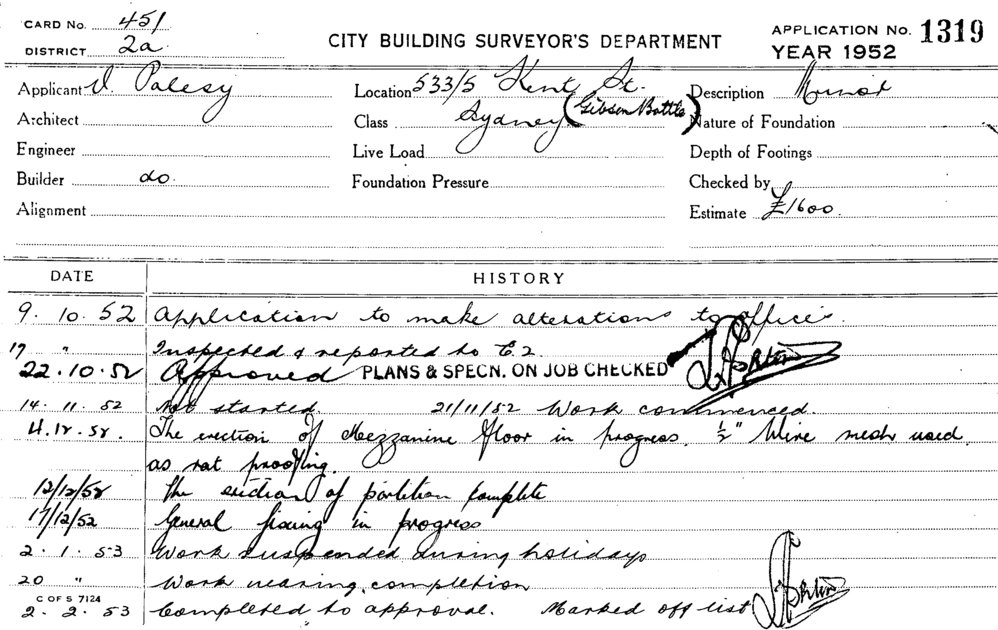 CARD No. 451
DISTRICT 2a
CITY BUILDING SURVEYOR'S DEPARTMENT
APPLICATION No. 1319
YEAR 1952
Applicant V. Palesy
Location 533/5 Kent St.
Description Minor
Architect
Class Sydney (Gibson Battle)
Nature of Foundation
Engineer
Live Load
Depth of Footings
Builder do
Foundation Pressure
Checked by
Alignment
Estimate £1600.
DATE HISTORY
9. 10. 52 Application to make alterations to offices.
17 " Inspected & reported to C.2.
22.10.52 Approved PLANS & SPECN. ON JOB CHECKED
14. 11. 52 Not started. 21/11/52 Work commenced.
4.12.52. The erection of Mezzanine floor in progress. ½" Wire mesh used
as rat proofing.
12/12/52 The erection of partition complete
17/12/52 General fixing in progress
2. 1. 53 Work suspended during holidays
20 " Work nearing completion
C OF S 7124
2. 2. 53 Completed to approval. Marked off list